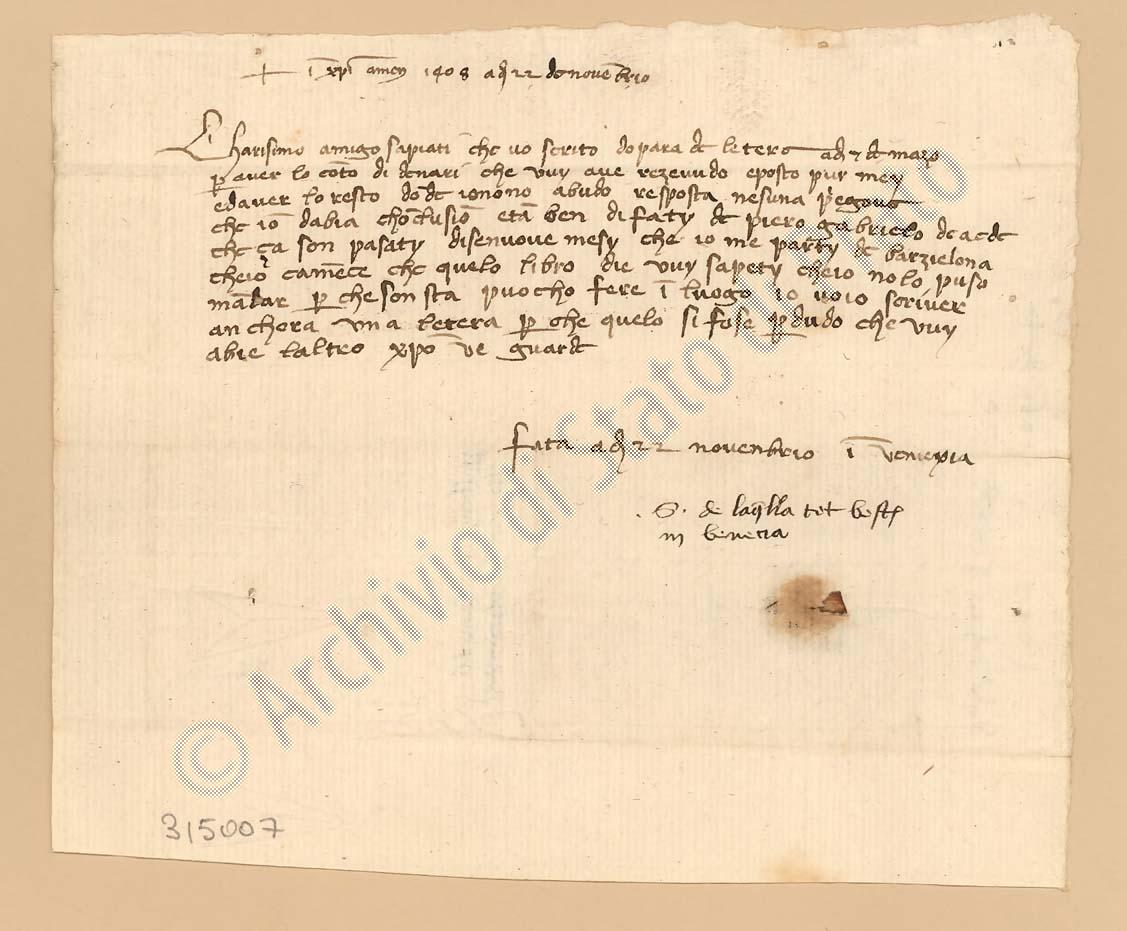 + ī xpī amen 1408 adj 22 de novenbrio
Charisimo amigo sapiati che vo scrito do para de letere adj 7 de mazo
p aver lo cōto di denari che vuy ave rezevudo e posto pur mey
ed aver lo resto dōde io nōno abudo resposta nesuna pregove
che io dabia chōclusiō etā ben di faty de piero gabrielo de
che ça son pasaty disenuove mesy che io me party de barzielona
camēce che quelo libro die vuy sapety che io no lo puso
mādar p che son sta puocho fere ī luogo io voio scriver
anchora una letera p che quelo si fose pdudo che vuy
abie laltro xpō ve guarde
fata adj 22 novenbrio ī venexia
S. de laqlla tot vostr
in venecia
315007
© Archivio di Stato di Prato